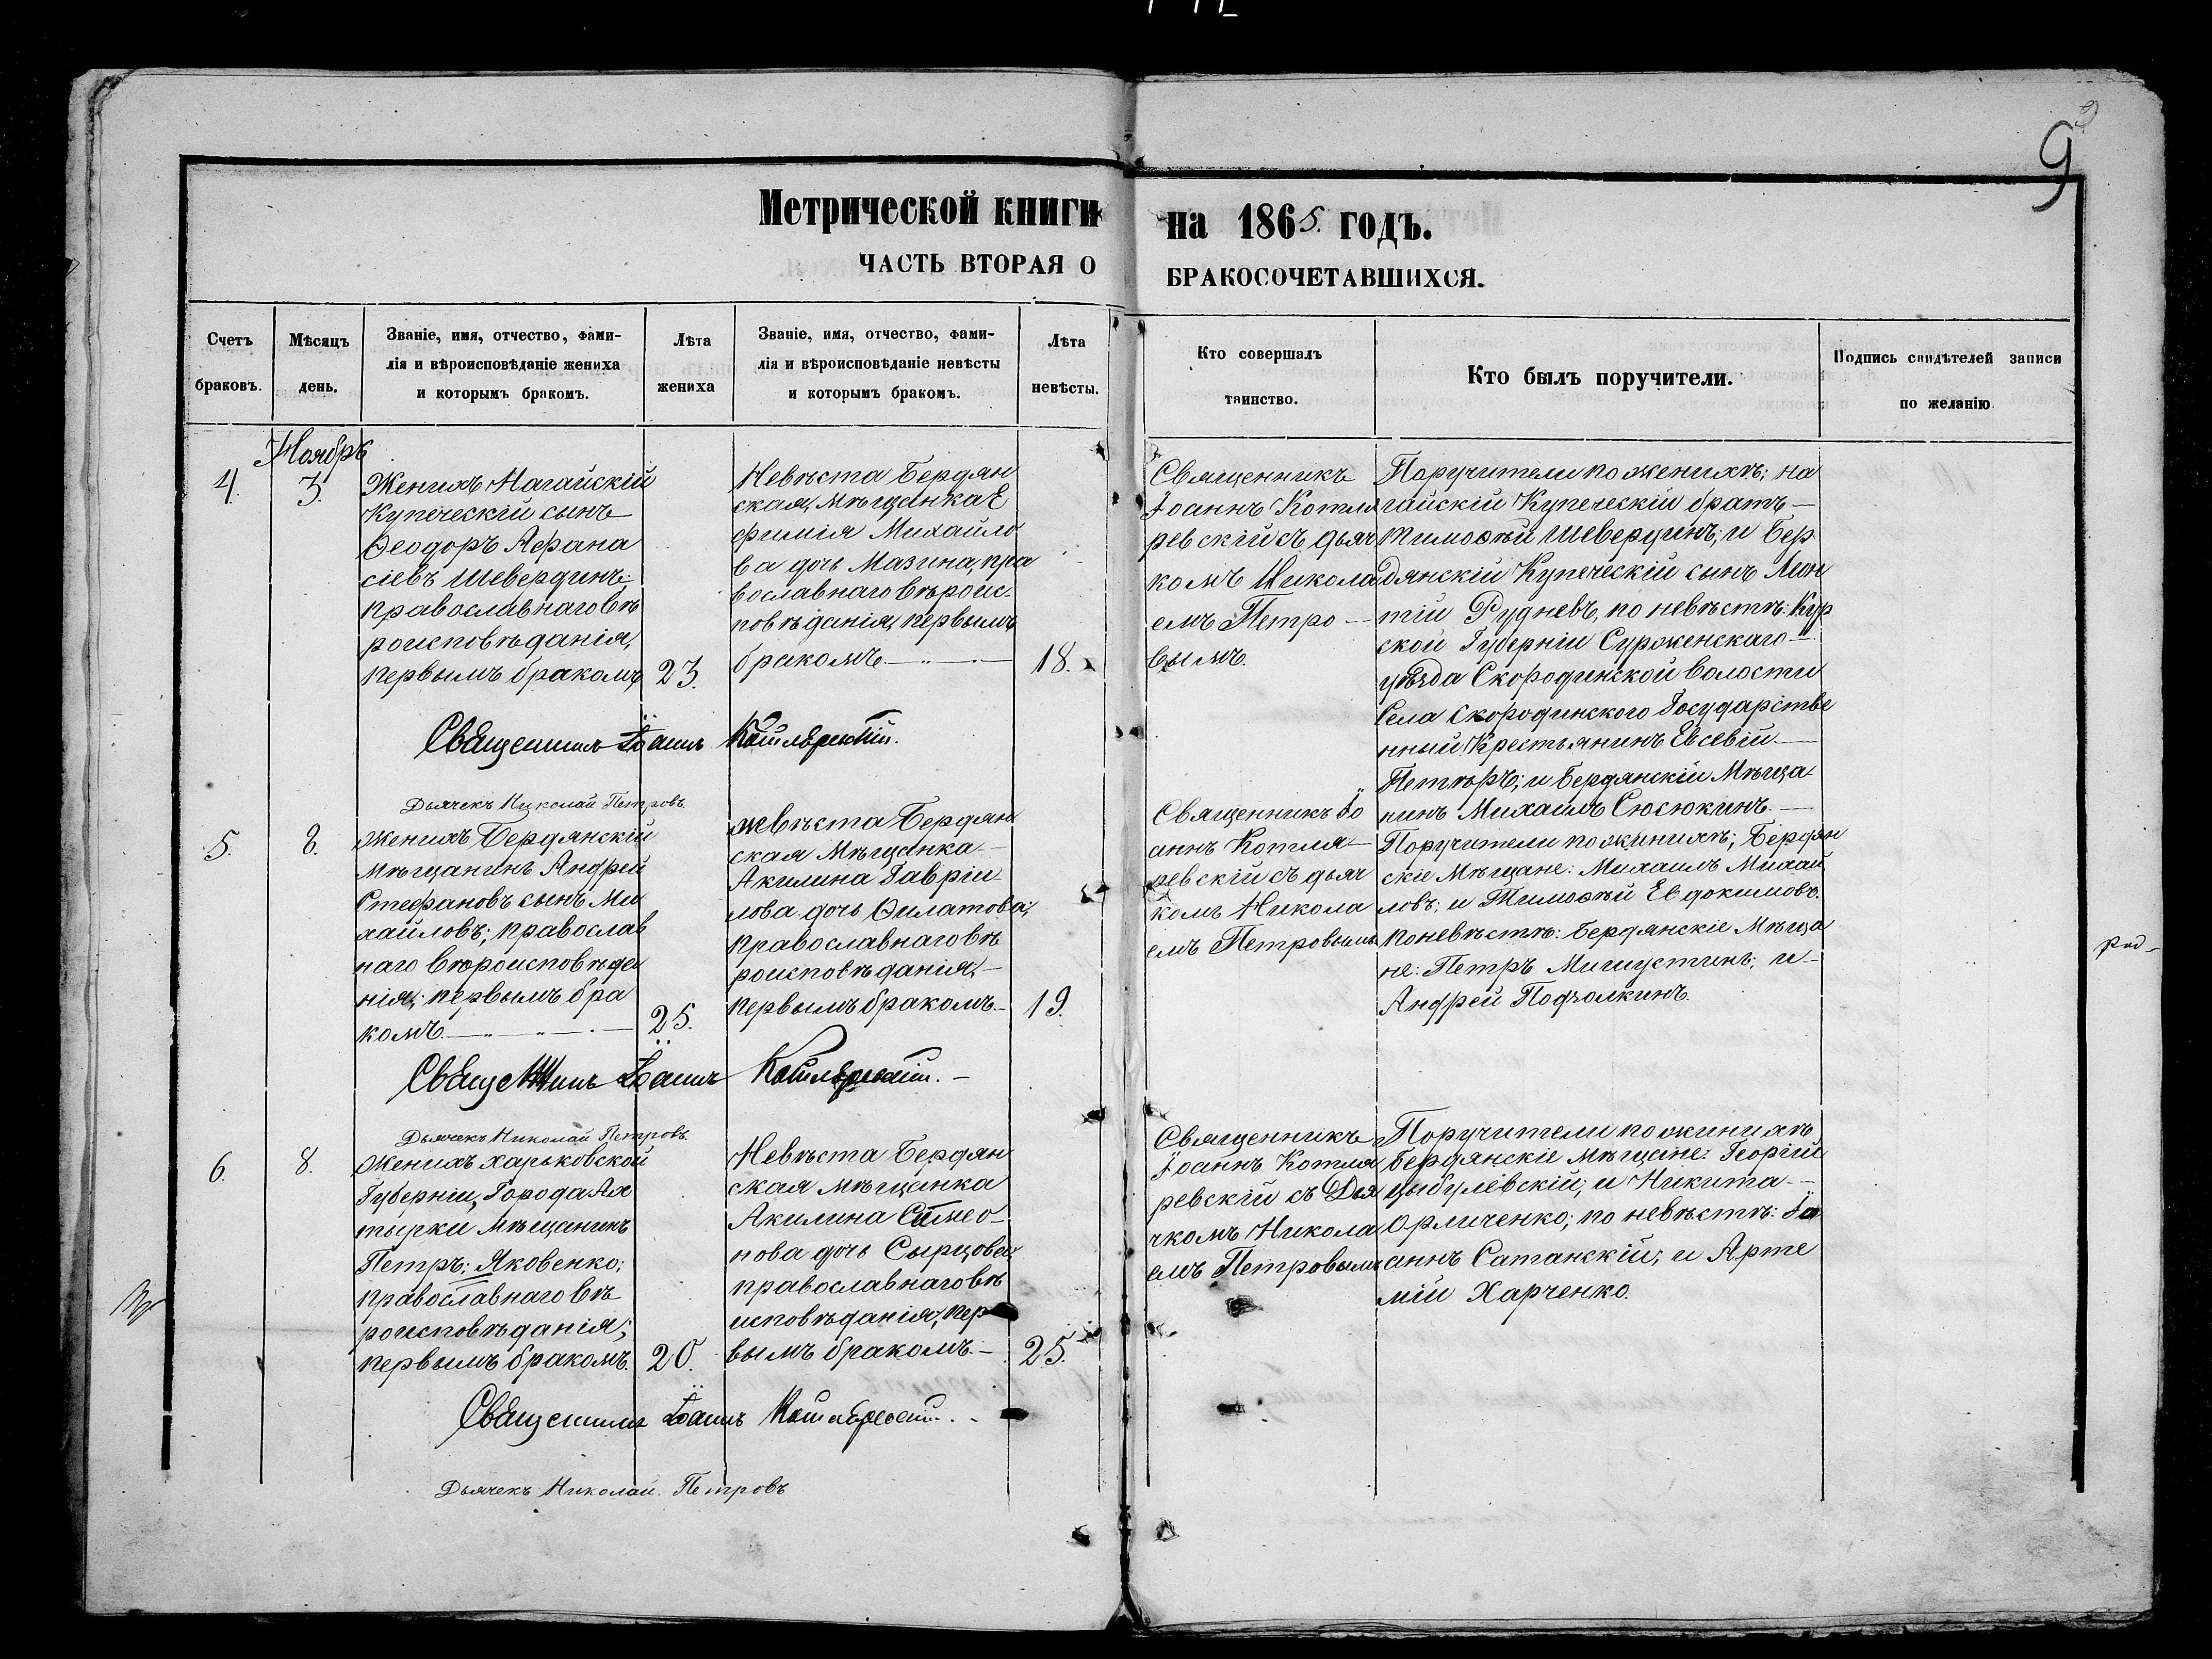 9
9
Метрической книги на 1865. годъ.
ЧАСТЬ ВТОРАЯ О БРАКОСОЧЕТАВШИХСЯ.
Счетъ
браковъ.
Мѣсяцъ
день.
Званіе, имя, отчество, фами-
лія и вѣроисповѣданіе жениха
и которымъ бракомъ.
Лѣта
жениха
Званіе, имя, отчество, фами-
лія и вѣроисповѣданіе невѣсты
и которымъ бракомъ.
Лѣта
невѣсты.
Кто совершалъ
таинство.
Кто былъ поручители.
Подпись свидѣтелей записи
по желанію
Ноябръ
4.
3.
Женихъ Нагайскій
Купеческій сынъ
Ѳеодоръ Афана
сіевъ Шевердинъ
православнаго вѣ
роисповѣданія,
первымъ бракомъ
23.
Невѣста Бердян
ская, Мѣщанка Е
фимія Михайло
ва дочь Мазина, пра
вославнаго вѣроис-
повѣданія, первымъ
бракомъ
18.
Священникъ
Іоаннъ Котля
ревскій съ дьяч
комъ Никола
емъ Петро
вымъ.
Поручители по женихѣ; на
гайскій Купеческій братъ
Тимоѳѣй Шевердинъ; и Бер
дянскій Купеческій сынъ Леон
тій Рудневъ, по невѣстѣ: Кур
ской Губерніи Суроженскаго
уѣзда Скородинской волости
Села Скородинского Государстве
нный Крестьянинъ Евсевій
Петѣръ; и Бердянскій Мѣща-
нинъ Михаилъ Сюсюкинъ.
Священникъ Іоаннъ Котляревскій.
Дьячекъ Николай Петровъ.
5.
8.
Женихъ Бердянскій
Мѣщанинъ Андрей
Стефановъ сынъ Ми
хайловъ; православ
наго вѣроисповѣда
нія; первымъ бра
комъ.
25.
Невѣста Бердян
ская Мѣщанка
Акилина Гавріи
лова дочь Филатова;
православнаго вѣ
роисповѣданія,
первымъ бракомъ.
19.
Священникъ Іо
аннъ Котля
ревскій съ дьяч
комъ Никола
емъ Петровымъ
Поручители по жинихѣ; Бердян
скіе Мѣщане: Михаилъ Михай
ловъ; и Тимоѳѣй Евдокимовъ.
по невѣстѣ: Бердянскіе Мѣща
не: Петръ Мишустинъ; и
Андрей Подчолкинъ.
Священникъ Іоаннъ Котляревскій.
Дьячекъ Николай Петровъ.
6.
8.
Женихъ Харьковской
Губерніи, Города Ах
тырки Мѣщанинъ
Петръ; Яковенко;
православнаго вѣ
роисповѣданія;
первымъ бракомъ.
20.
Невѣста Бердян
ская мѣщанка
Акилина Симео-
нова дочь Сырцовой
православнаго вѣ
исповѣданія, пер
вымъ бракомъ.
25.
Священникъ
Іоаннъ Котля
ревскій съ Дья
чкомъ Никола
емъ Петровымъ
Поручители по жинихѣ
Бердянскіе мѣщане: Георгій
Цыбулевскій; и Никита
Орличенко; по невѣстѣ: Іо
аннъ Сатанскій; и Арте
мій Харченко.
Священникъ Іоаннъ Котляревскій.
Дьячекъ Николай Петровъ